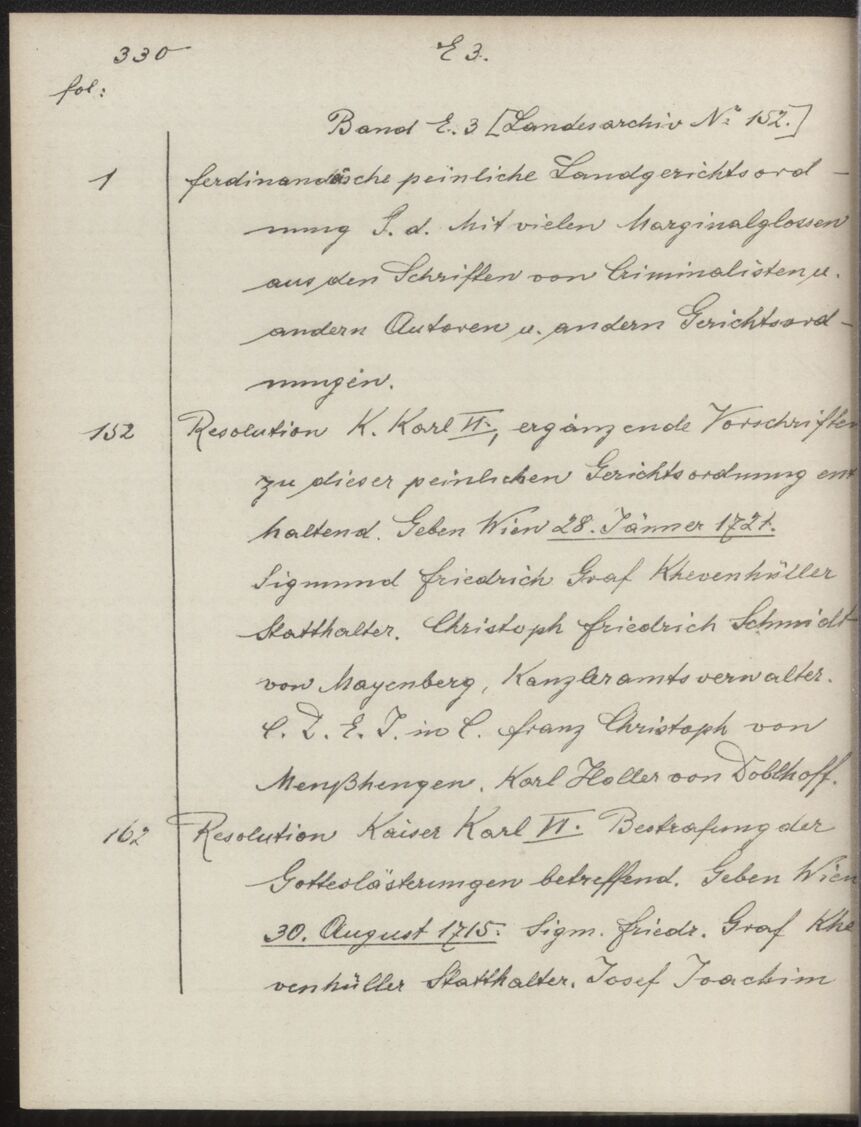 330 E 3.
fol:
Band E. 3 [Landesarchiv No 152.]
1 Ferdinandäische peinliche Landgerichtsord-
nung S. d. Mit vielen Marginalglossen
aus den Schriften von Criminalisten u.
andern Autoren u. andern Gerichtsord-
nungen.
152 Resolution K. Karl VI., ergänzende Vorschriften
zu dieser peinlichen Gerichtsordnung ent
haltend. Geben Wien 28. Jänner 1721.
Sigmund Friedrich Graf Khevenhüller
Statthalter. Christoph Friedrich Schmidt
von Mayenberg, Kanzleramtsverwalter.
C. D. E. J. in C. Franz Christoph von
Menßhengen. Karl Holler von Doblhoff.
162 Resolution Kaiser Karl VI. Bestrafung der
Gotteslästerungen betreffend. Geben Wien
30. August 1715. Sigm. Friedr. Graf Khe
venhüller Statthalter. Josef Joachim